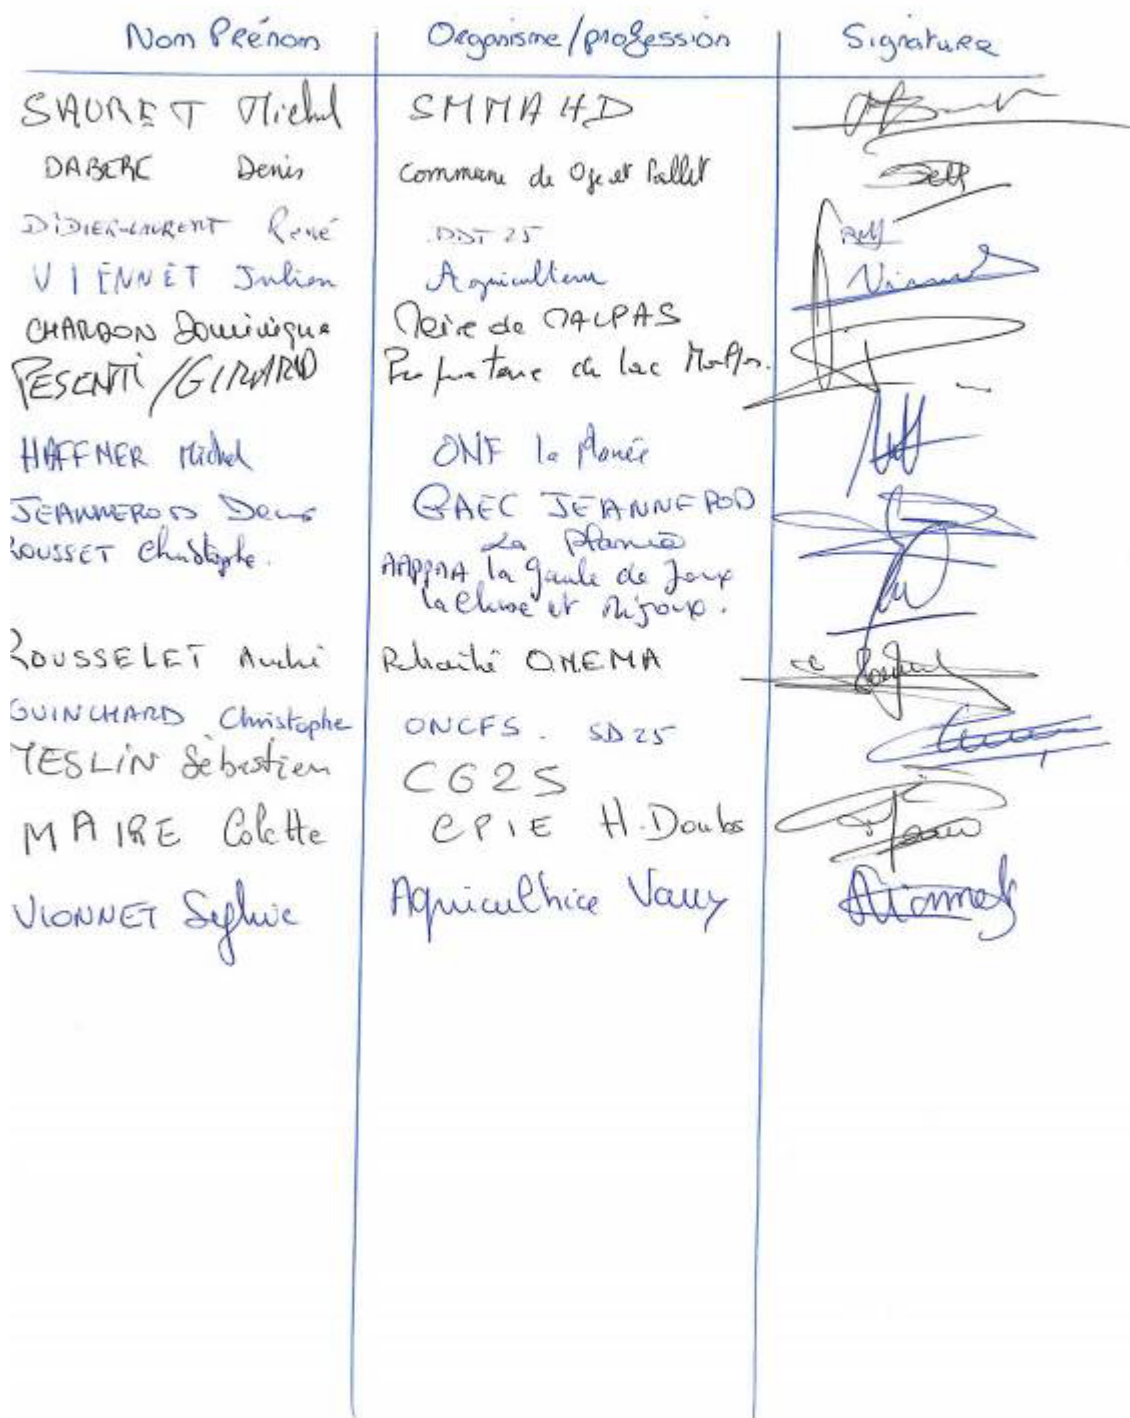 Nom Prénom Organisme/profession Signature
SAURET Michel SMMAHD
DABERE Denis Commune de Oye et Pallet
DIDIER-LAURENT René DDT 25
VIENNET Julien Agriculteur
CHARDON Dominique Maire de MALPAS
PESENTI/GIRARD lac
HAFFNER Michel ONF la Planée
JEANNEROD Denis GAEC JEANNEROD
La Planée
ROUSSET Christophe. AAPPMA la Gaule de Joux
la Cluse et Mijoux.
ROUSSELET André Retraité ONEMA
GUINCHARD Christophe ONCFS. SD25
TESLIN Sébastien CG25
MAIRE Colette CPIE H.Doubs
VIONNET Sylvie Agricultrice Vaux